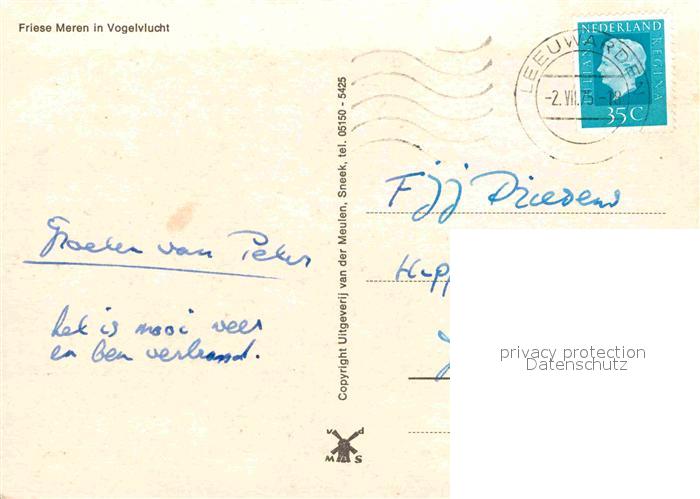 Friese Meren in Vogelvlucht
Groeten van Peter
het is mooi weer
en ben verbrand.
Copyright Uitgeverij van der Meulen, Sneek, tel. 05150 - 5425
v d
M S
LEEUWARDEN
-2. VII. 75 -18
NEDERLAND
JULIANA REGINA
35C
privacy protection
Datenschutz